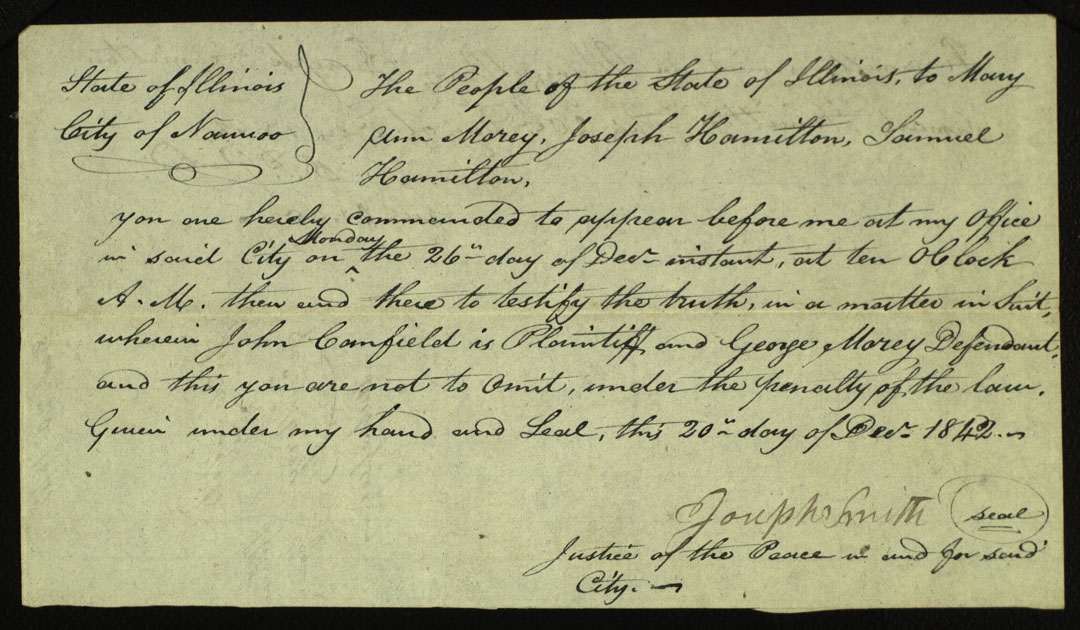 State of Illinois
City of Nauvoo
The People of the State of Illinois, to Mary
Ann Morey, Joseph Hamilton, Samuel
Hamilton,
you are hereby commanded to appear before me at my Office
Monday
in said City on ^ the 26th day of Decr instant, at ten OClock
A. M. then and there to testify the truth, in a matter in Suit,
wherein John Canfield is Plaintiff and George Morey Defendant,
and this you are not to omit, under the penalty of the law.
Given under my hand and Seal, this 20th day of Decr 1842.
Joseph Smith seal
Justice of the Peace in and for said
City.